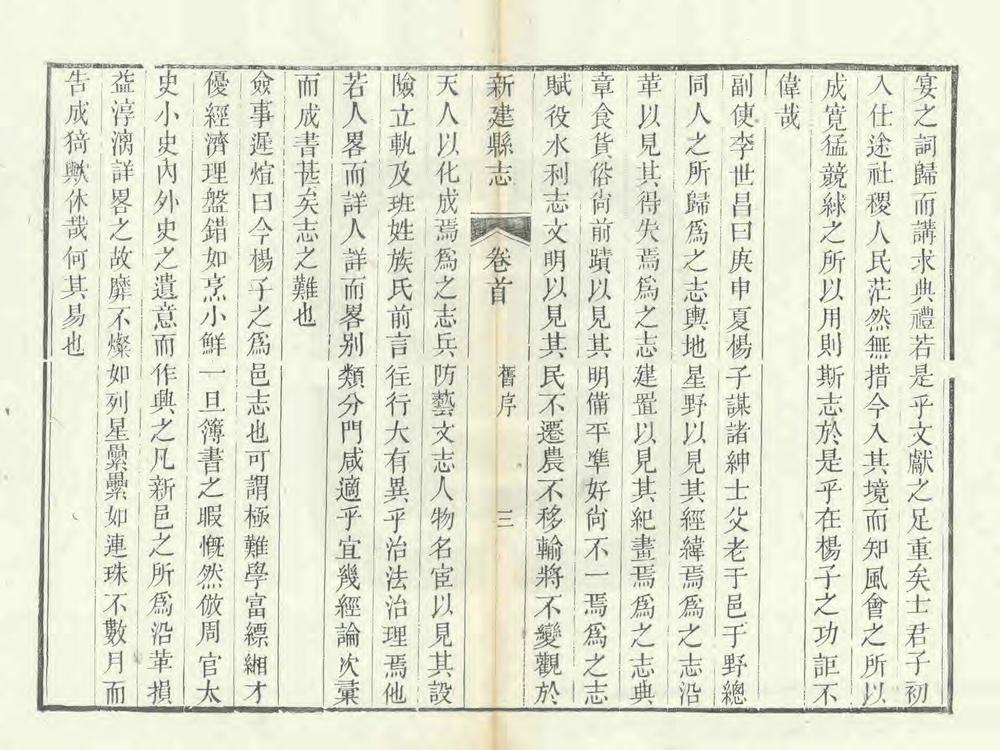 宴之詞歸而講求典禮若是乎文獻之足重矣士君子初
入仕途社稷人民茫然無措今入其境而知風會之所以
成寛猛競絿之所以用則斯志於是乎在楊子之功詎不
偉哉
副使李世昌曰庚申夏楊子謀諸紳士父老于邑于野總
同人之所歸爲之志輿地星野以見其經緯焉爲之志沿
革以見其得失焉爲之志建置以見其紀畫焉爲之志典
章食貨俗尙前蹟以見其明備平準好尙不一焉爲之志
賦役水利志文明以見其民不遷農不移輸將不變觀於
新建縣志
卷首
舊序
三
天人以化成焉爲之志兵防藝文志人物名宦以見其設
險立軌及班姓族氏前言往行大有異乎治法治理焉他
若人畧而詳人詳而畧别類分門咸適乎宜幾經論次彙
而成書甚矣志之難也
僉事遲煊曰今楊子之爲邑志也可謂極難學富縹緗才
優經濟理盤錯如烹小鮮一旦簿書之暇慨然倣周官太
史小史內外史之遺意而作興之凡新邑之所爲沿革損
益淳漓詳畧之故靡不燦如列星纍纍如連珠不數月而
告成猗歟休哉何其易也